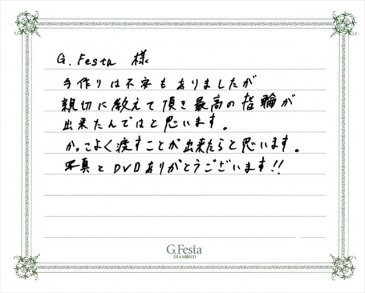 G. Festa 様
手作りは不安もありましたが
親切に教えて頂き最高の指輪が
出来たんではと思います。
かっこよく渡すことが出来たらと思います。
写真とDVDありがとうございます!!
G.Festa
DIAMOND